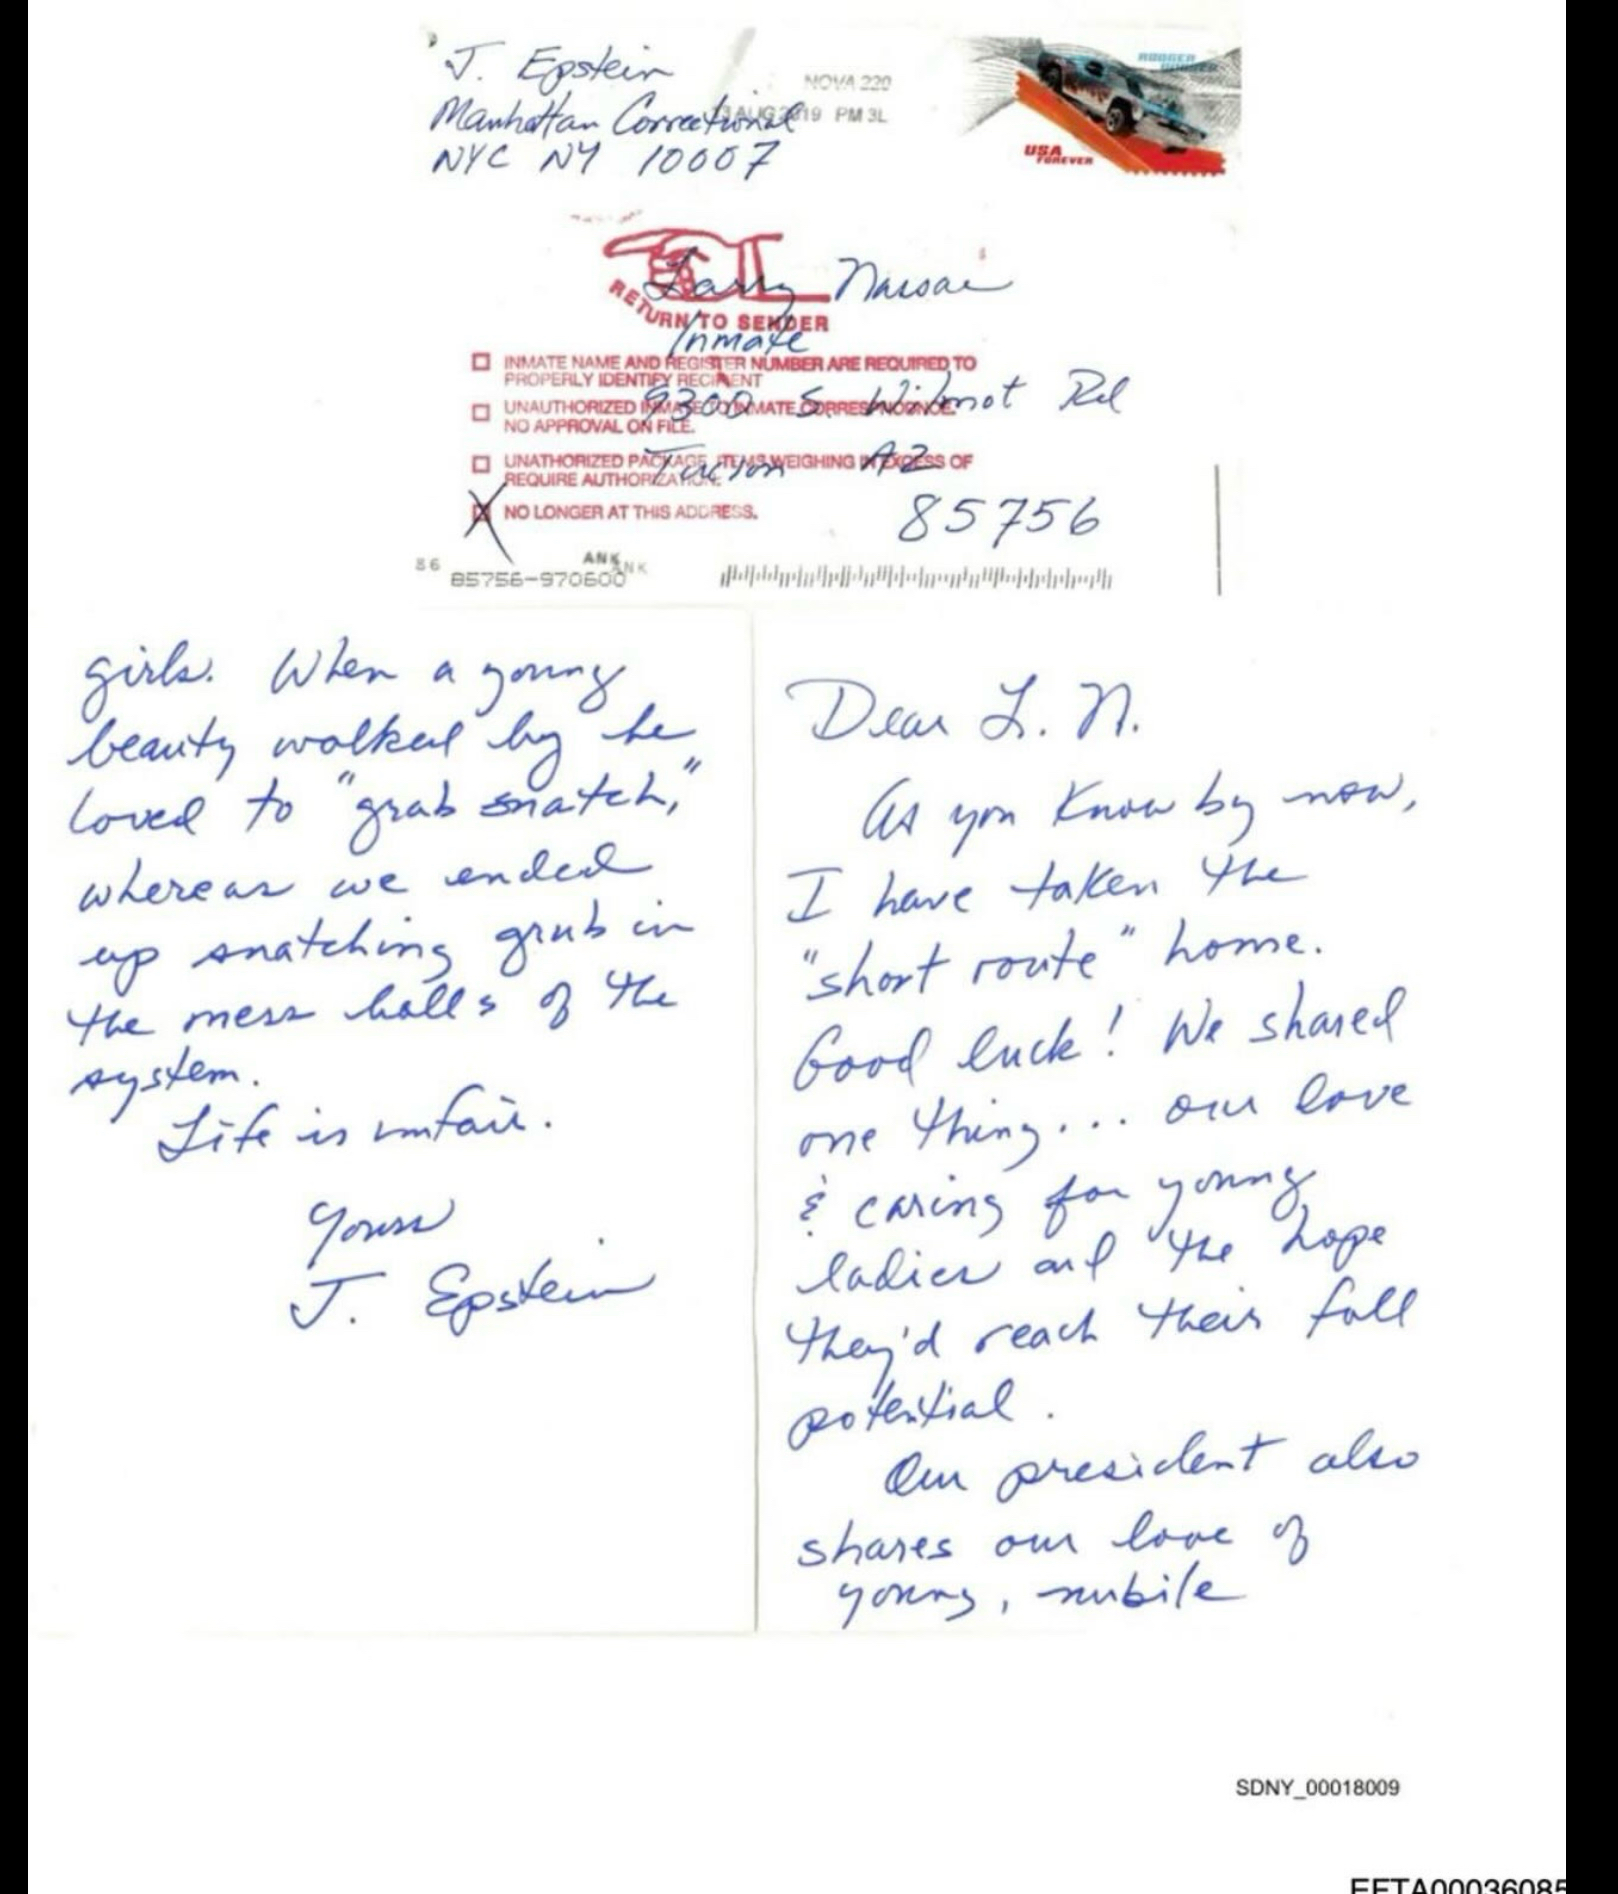 J. Epstein
Manhattan Correctional
NYC NY 10007
NOVA 220
AUG 2019 PM 3L
USA
FOREVER
Larry Nassar
RETURN TO SENDER
Inmate
INMATE NAME AND REGISTER NUMBER ARE REQUIRED TO
PROPERLY IDENTIFY RECIPIENT
9300 S. Wilmot Rd
UNAUTHORIZED INMATE TO INMATE CORRESPONDENCE.
NO APPROVAL ON FILE.
Tucson AZ
UNATHORIZED PACKAGE, ITEMS WEIGHING IN EXCESS OF
REQUIRE AUTHORIZATION.
X NO LONGER AT THIS ADDRESS.
85756
86
ANK
ANK
85756-970600
Dear L. N.
As you know by now,
I have taken the
"short route" home.
Good luck! We shared
one thing... our love
& caring for young
ladies and the hope
they'd reach their full
potential.
Our president also
shares our love of
young, nubile
girls. When a young
beauty walked by he
loved to "grab snatch,"
whereas we ended
up snatching grub in
the mess halls of the
system.
Life is unfair.
Yours
J. Epstein
SDNY_00018009
EFTA00036085